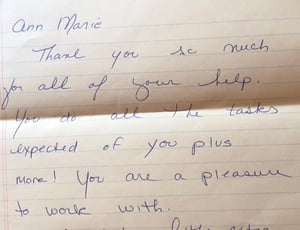 Ann Marie
Thank you so much
for all of your help.
You do all the tasks
expected of you plus
more! You are a pleasure
to work with.